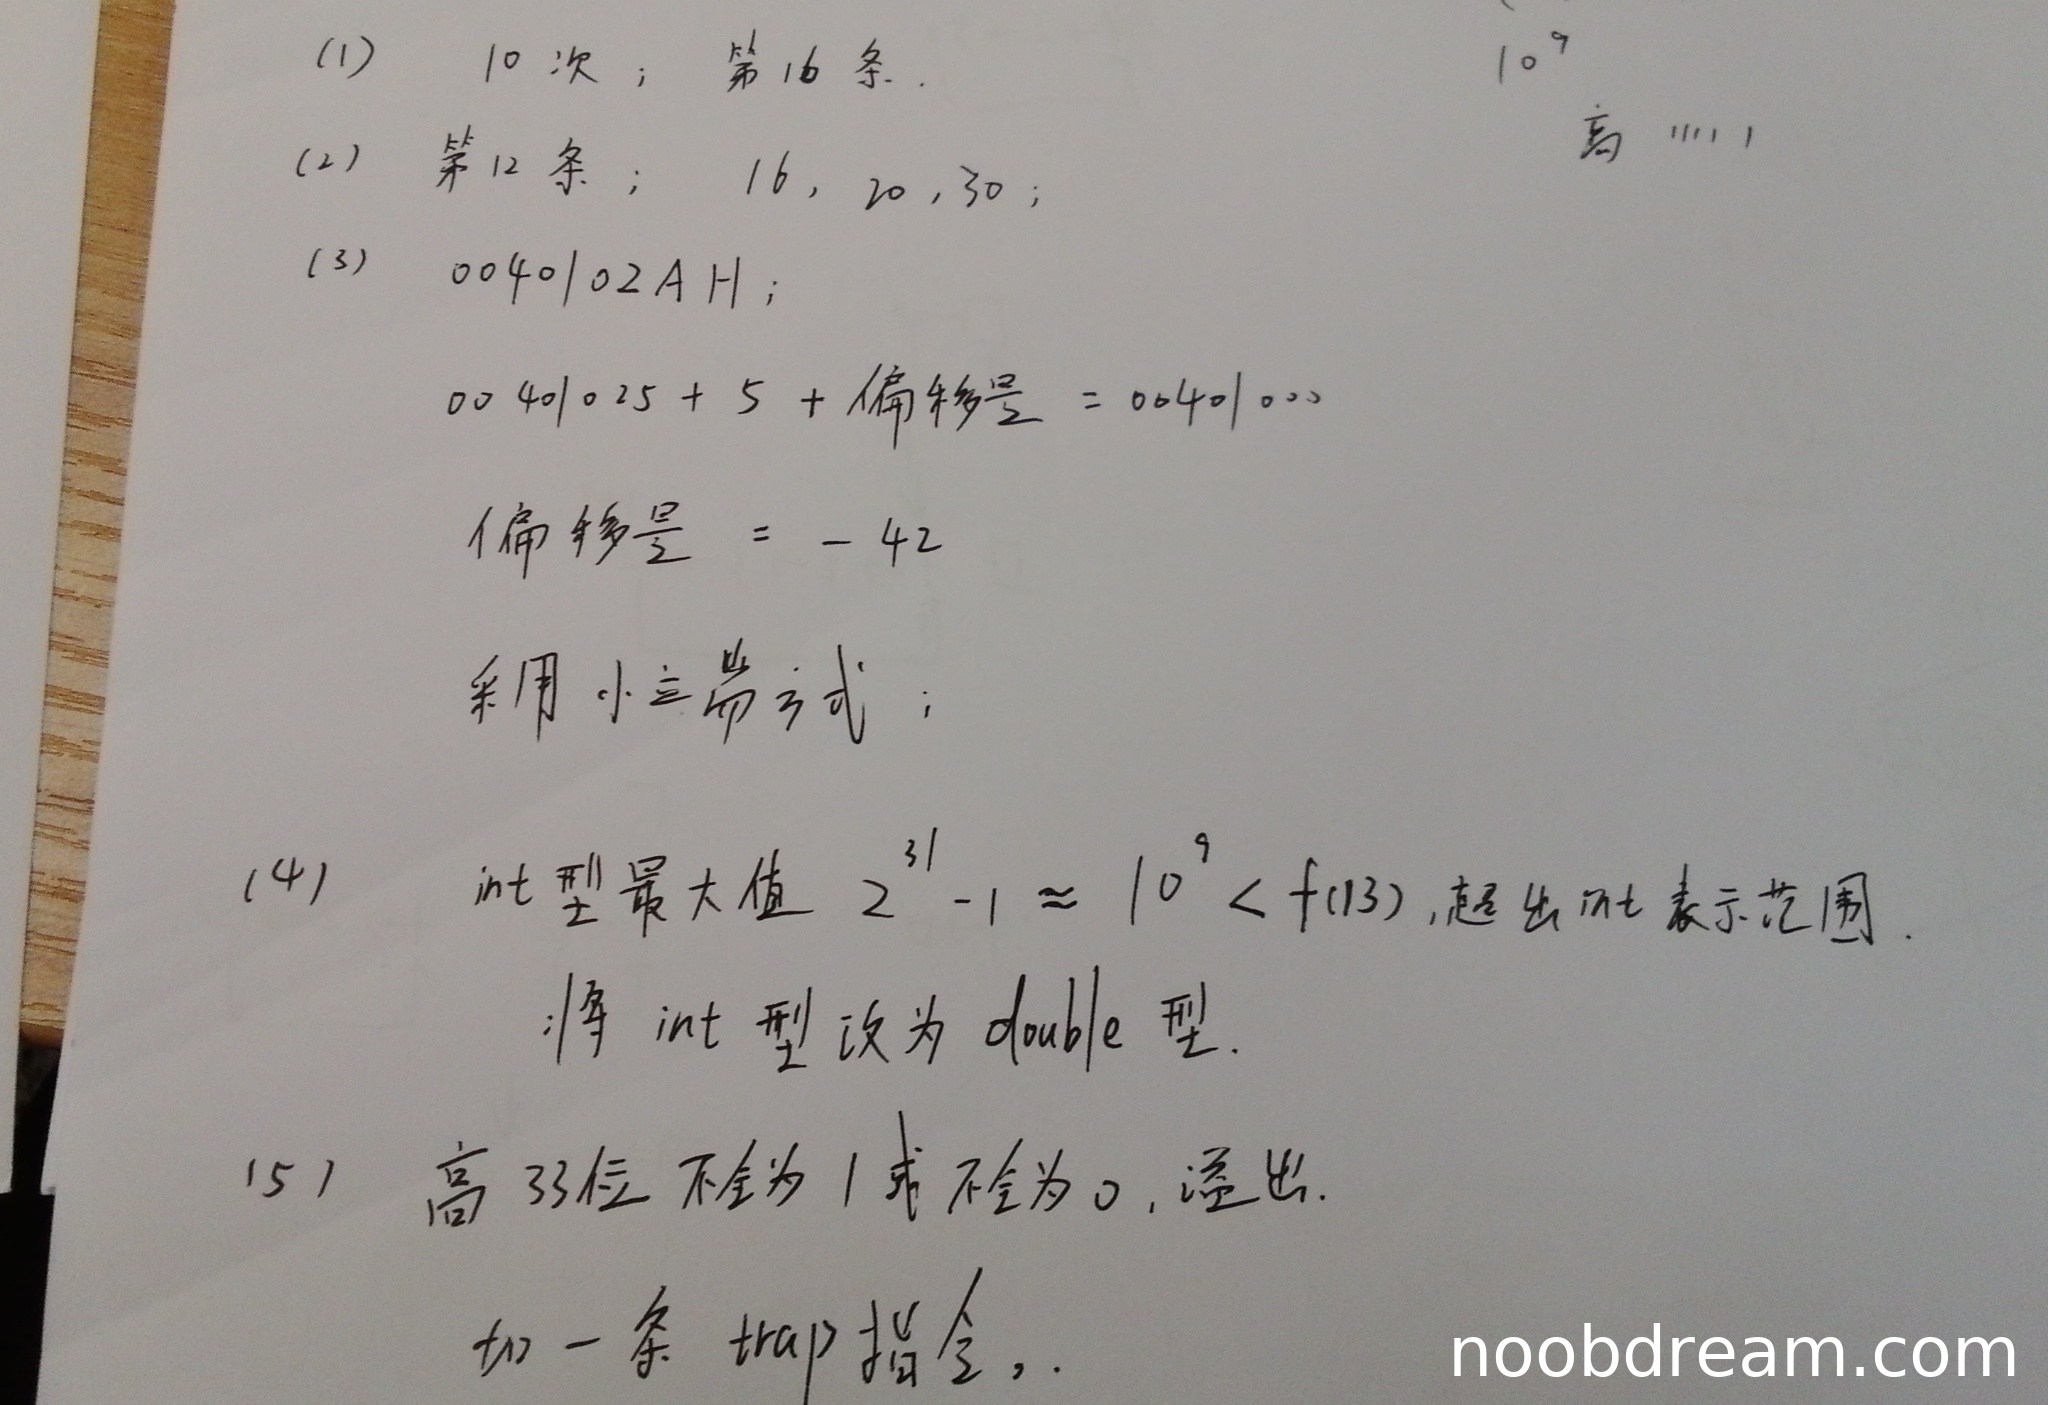 (1) 10次; 第16条.
10⁹
高 11111
(2) 第12条; 16, 20, 30;
(3) 0040102AH;
00401025 + 5 + 偏移量 = 00401000
偏移量 = -42
采用小端方式;
(4) int型最大值 2³¹-1 ≈ 10⁹ < f(13), 超出int表示范围.
将 int 型改为 double 型.
(5) 高33位不全为1或不全为0, 溢出.
加一条 trap指令.
noobdream.com